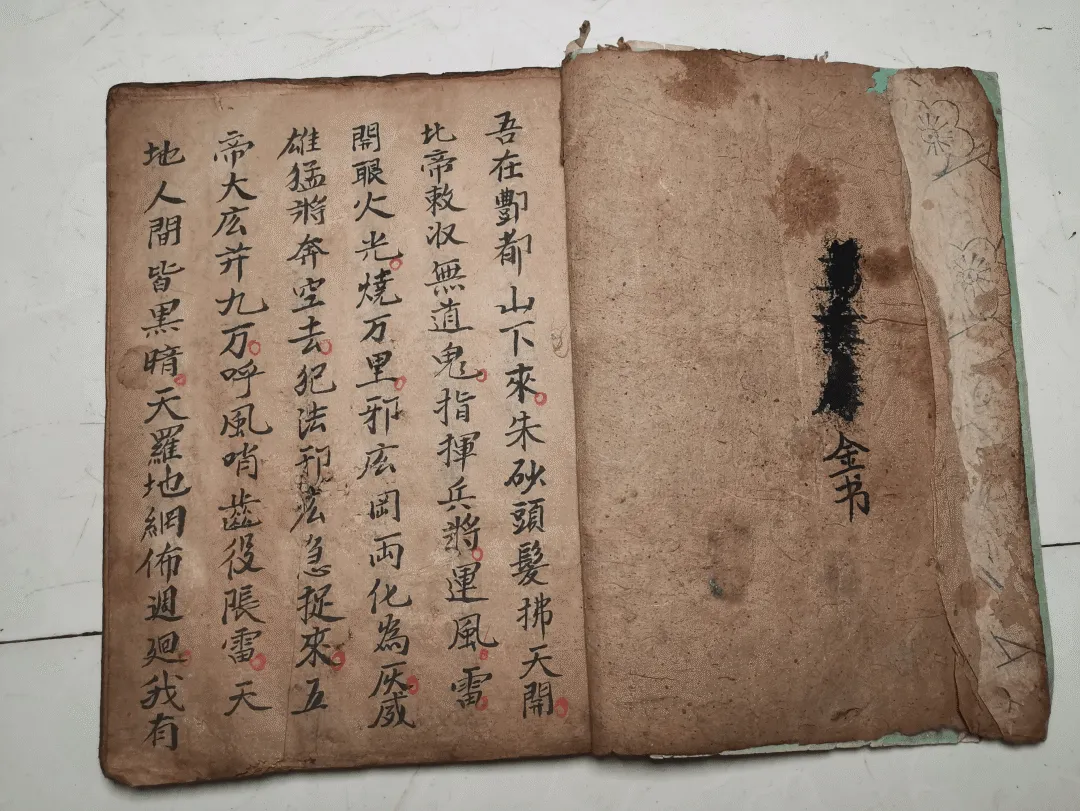 金书
吾在酆都山下來朱砂頭髮拂天開
北帝敕收無道鬼指揮兵將運風雷
開眼火光燒万里邪庅岡両化為灰威
雄猛將奔空去犯法邪庅急捉來五
帝大庅并九万呼風哨齒役張雷天
地人間皆黑暗天羅地網佈週廻我有